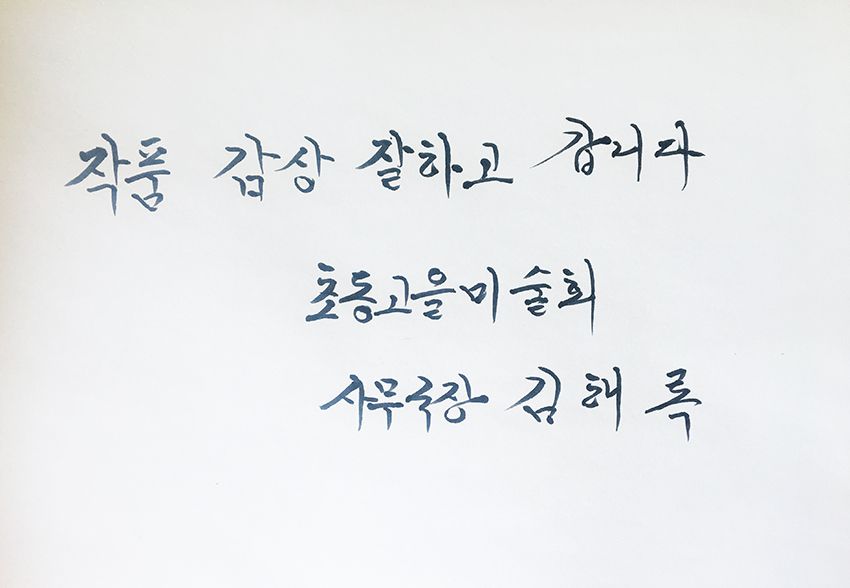 작품 감상 잘하고 갑니다
초동고을미술회
사무국장 김해록